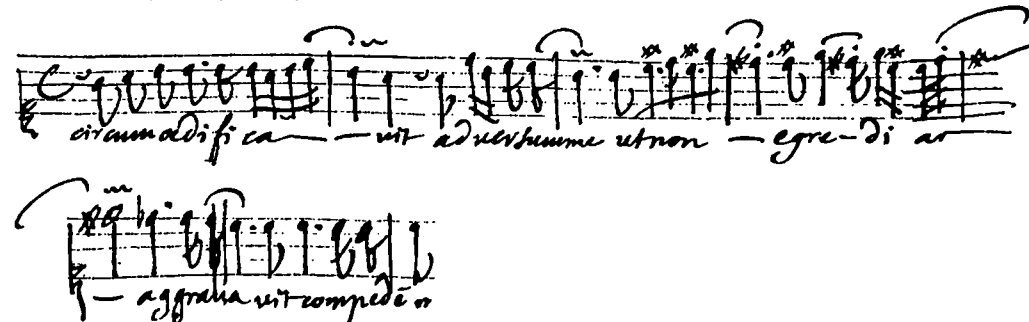 circumædifica - vit adversumme utnon - egre-di ar
- aggrava vit compedē m